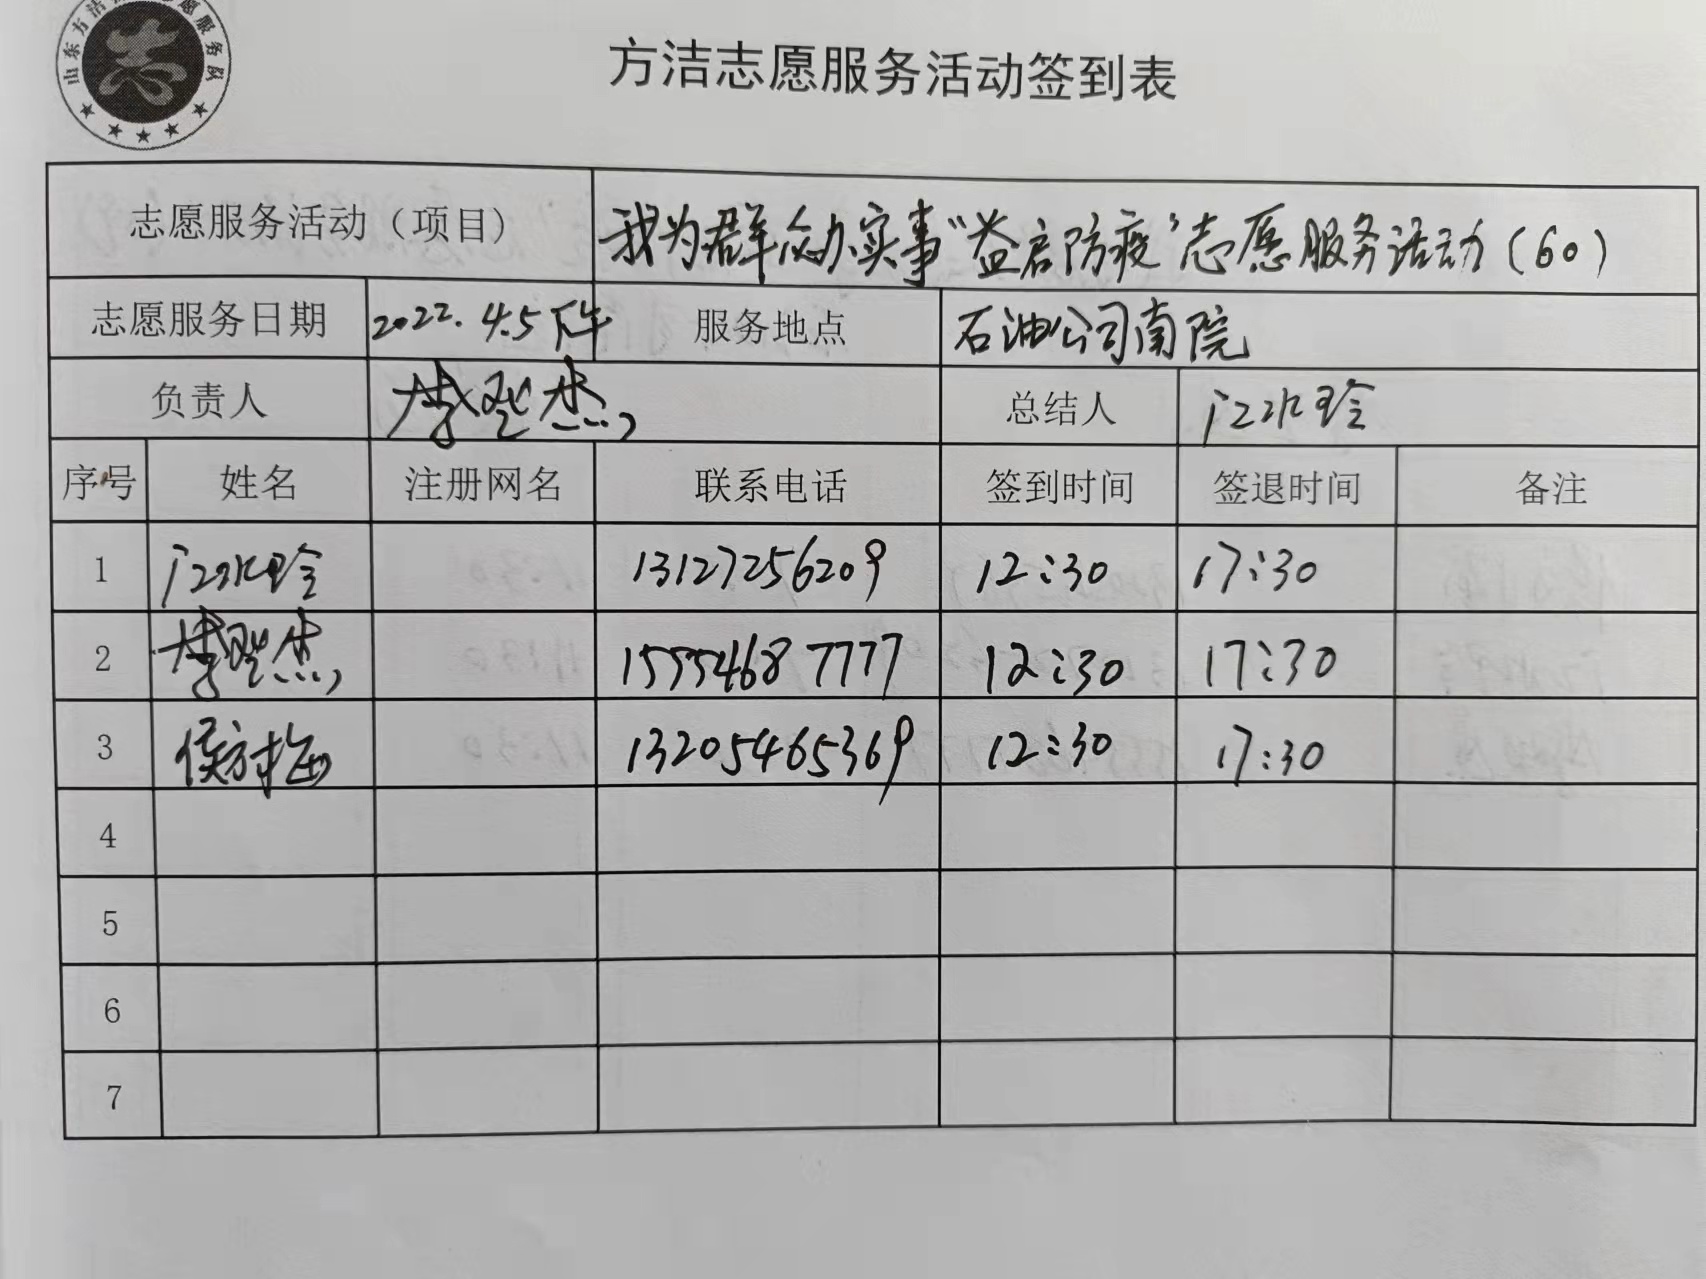 志
方洁志愿服务活动签到表
志愿服务活动（项目） 我为群众办实事“益启防疫”志愿服务活动（60）
志愿服务日期 2022.4.5下午 服务地点 石油公司南院
负责人 总结人 江水玲
序号 姓名 注册网名 联系电话 签到时间 签退时间 备注
1 江水玲 13127256209 12:30 17:30
2 15554687777 12:30 17:30
3 侯方梅 13205465369 12:30 17:30
4
5
6
7